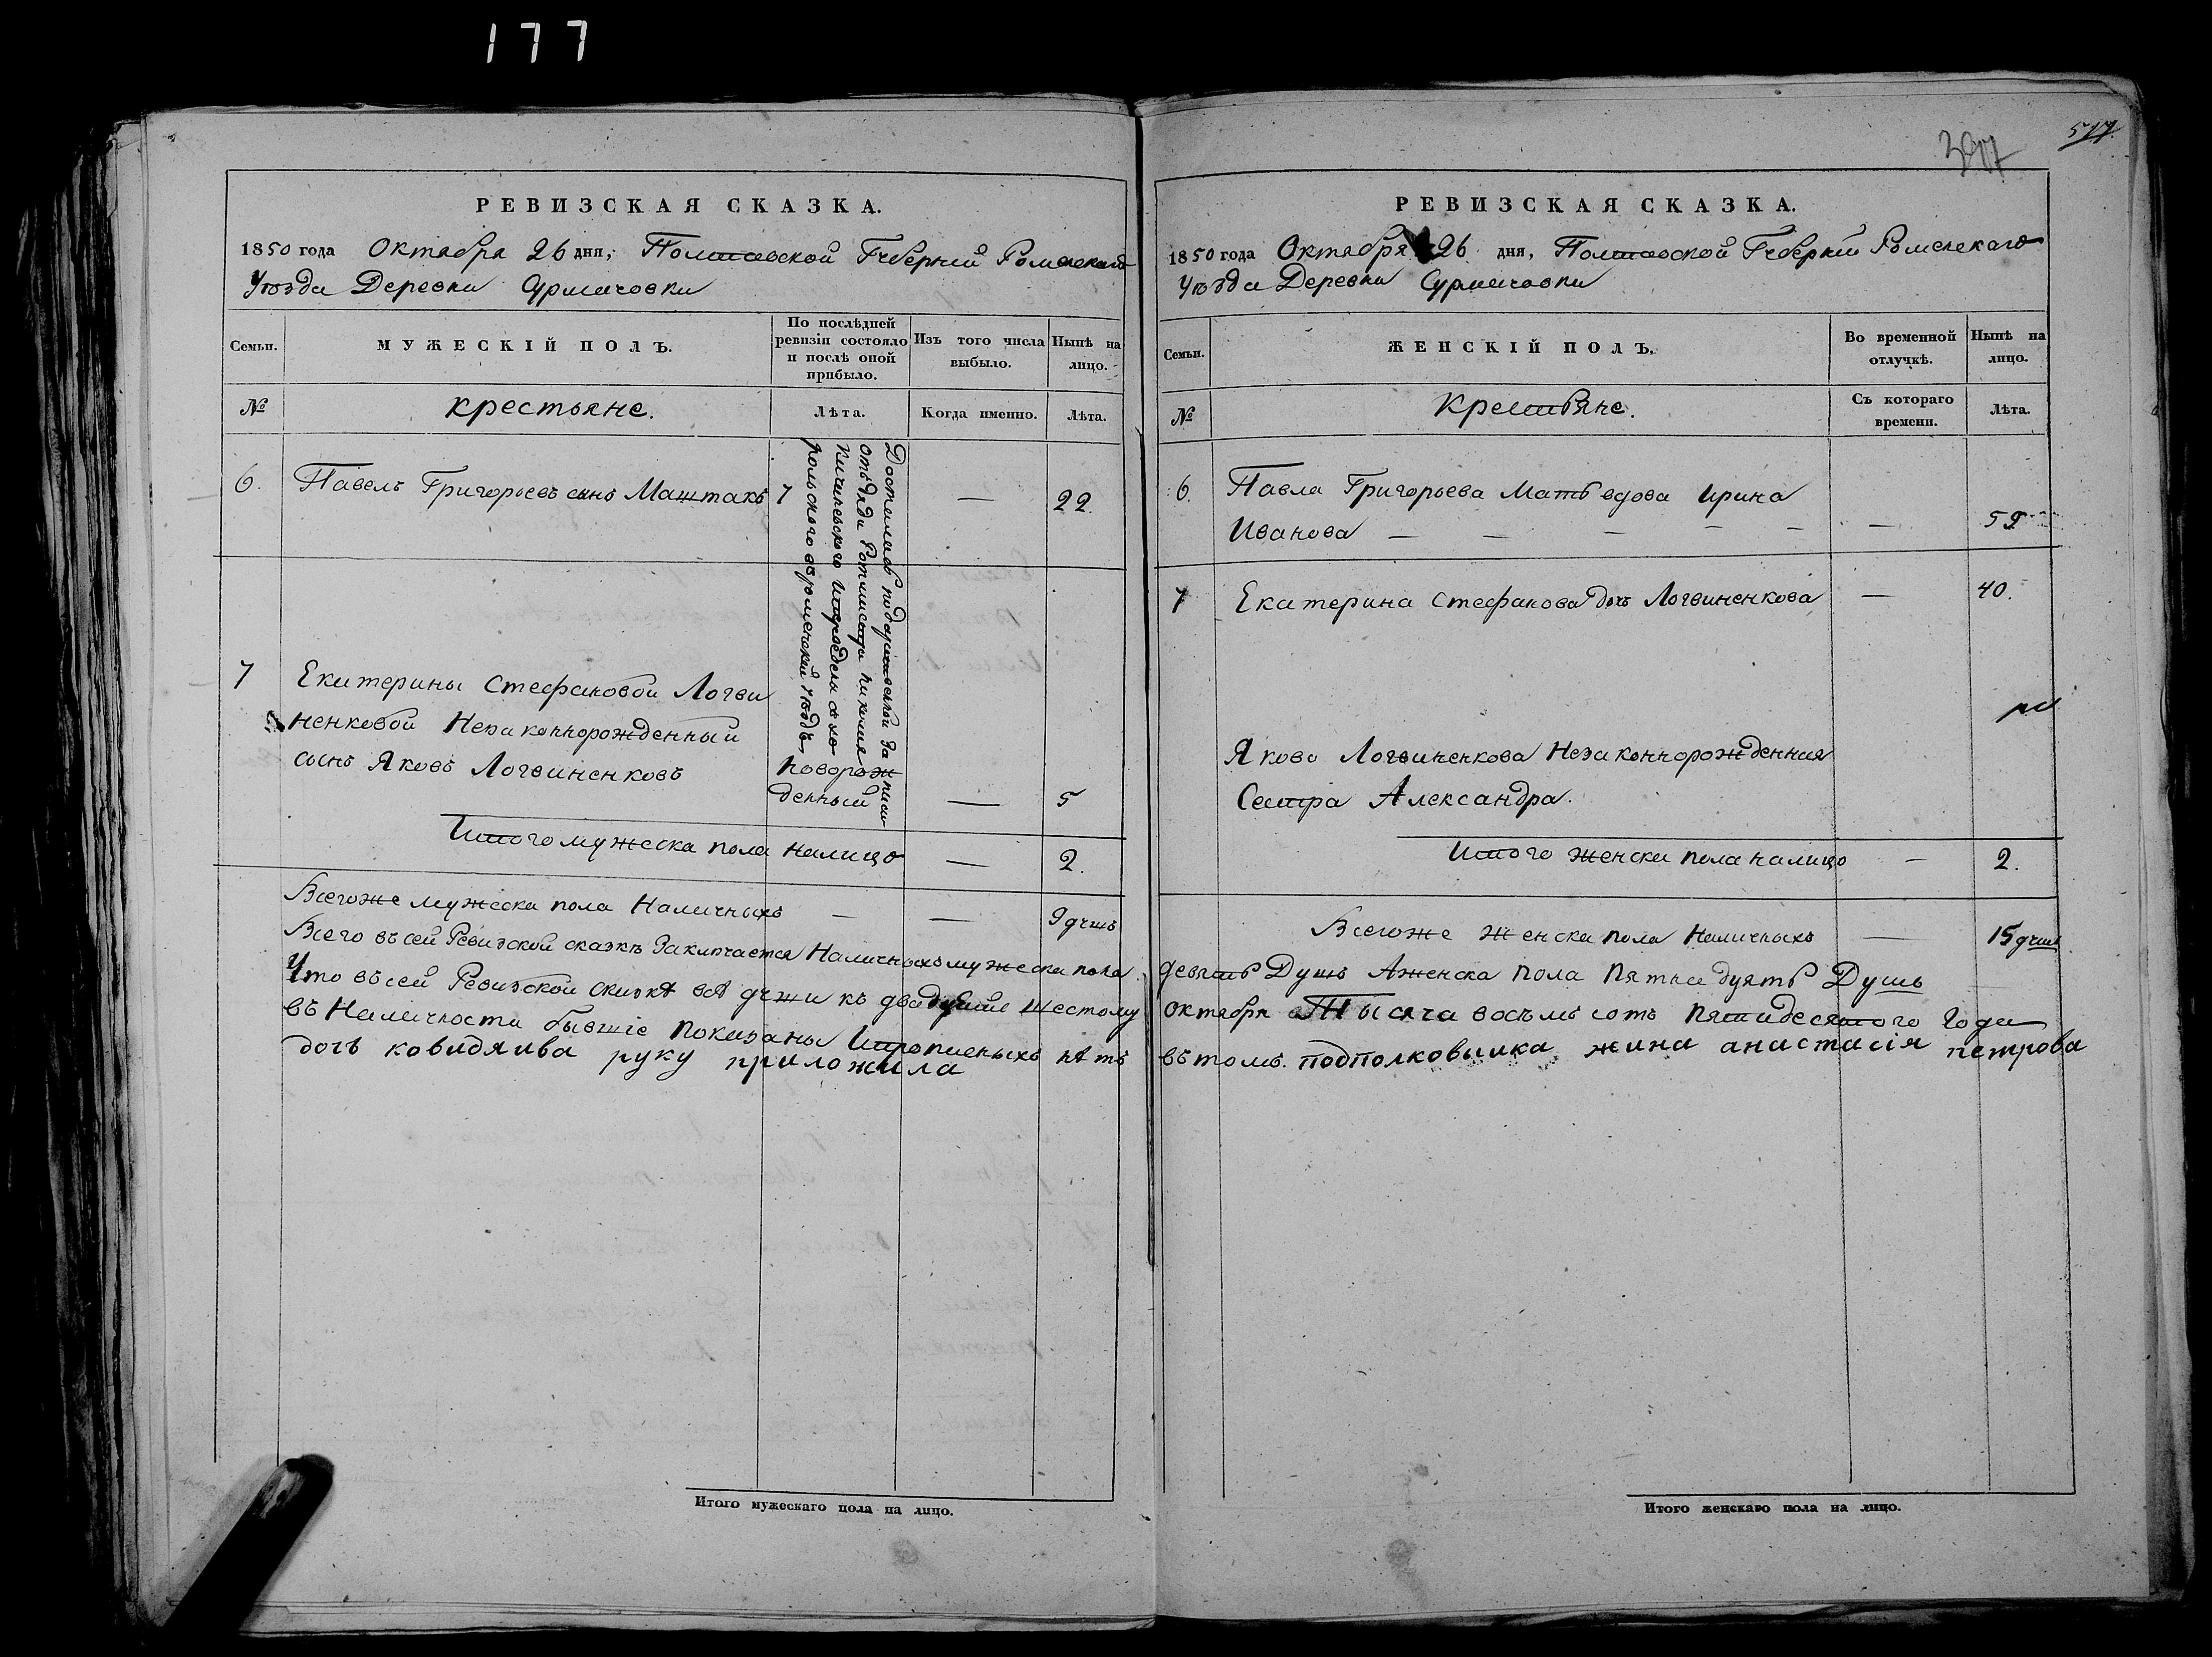 177
РЕВИЗСКАЯ СКАЗКА.
1850 года Октября 26 дня, Полтавской Губерніи Роменскаго
Уѣзда Деревни Сурмачовки
Семьи.
МУЖЕСКІЙ ПОЛЪ.
По послѣдней ревизіи состояло и послѣ оной прибыло.
Изъ того числа выбыло.
Нынѣ на лицо.
№
крестьяне.
Лѣта.
Когда именно.
Лѣта.
6. Павелъ Григорьевъ сынъ Маштакъ 7 — 22.
Достался по дарственной записи
отъ дяди Ротмистра
рольскаго въ роменскій уѣздъ
7 Екатерины Стефановой Логви
ненковой Незаконнорожденный
сынъ Яковъ Логвиненковъ
новорож
денный — 5
Итого мужеска пола налицо — 2.
Всегоже мужеска пола Наличныхъ — — 9 душъ
Всего въ сей Ревизской сказкѣ Заключается Наличныхъ мужеска пола
Что въ сей Ревизской сказкѣ всѣ души къ двадцать шестому
въ Наличности бывшіе показаны Ипрописныхъ нѣтъ
дочь руку приложила
Итого мужескаго пола на лицо.
577
РЕВИЗСКАЯ СКАЗКА.
1850 года Октября 26 дня, Полтавской Губерніи Роменскаго
Уѣзда Деревни Сурмачовки
Семьи.
ЖЕНСКІЙ ПОЛЪ.
Во временной отлучкѣ.
Нынѣ на лицо.
№
Крестьяне.
Съ котораго времени.
Лѣта.
6. Павла Григорьева Мать вдова Ирина
Иванова — — — — —
7 Екатерина Стефанова дочь Логвиненкова — 40.
Якова Логвиненкова Незаконнорожденная
Сестра Александра.
Итого женска пола налицо — 2.
Всегоже женска пола Наличныхъ — 15 душъ
девять Душъ Аженска пола пятнадцать Душъ
октября Тысяча восемь сотъ пятидесятого Года
въ томъ. подполковника жина анастасія петрова
Итого женскаго пола на лицо.